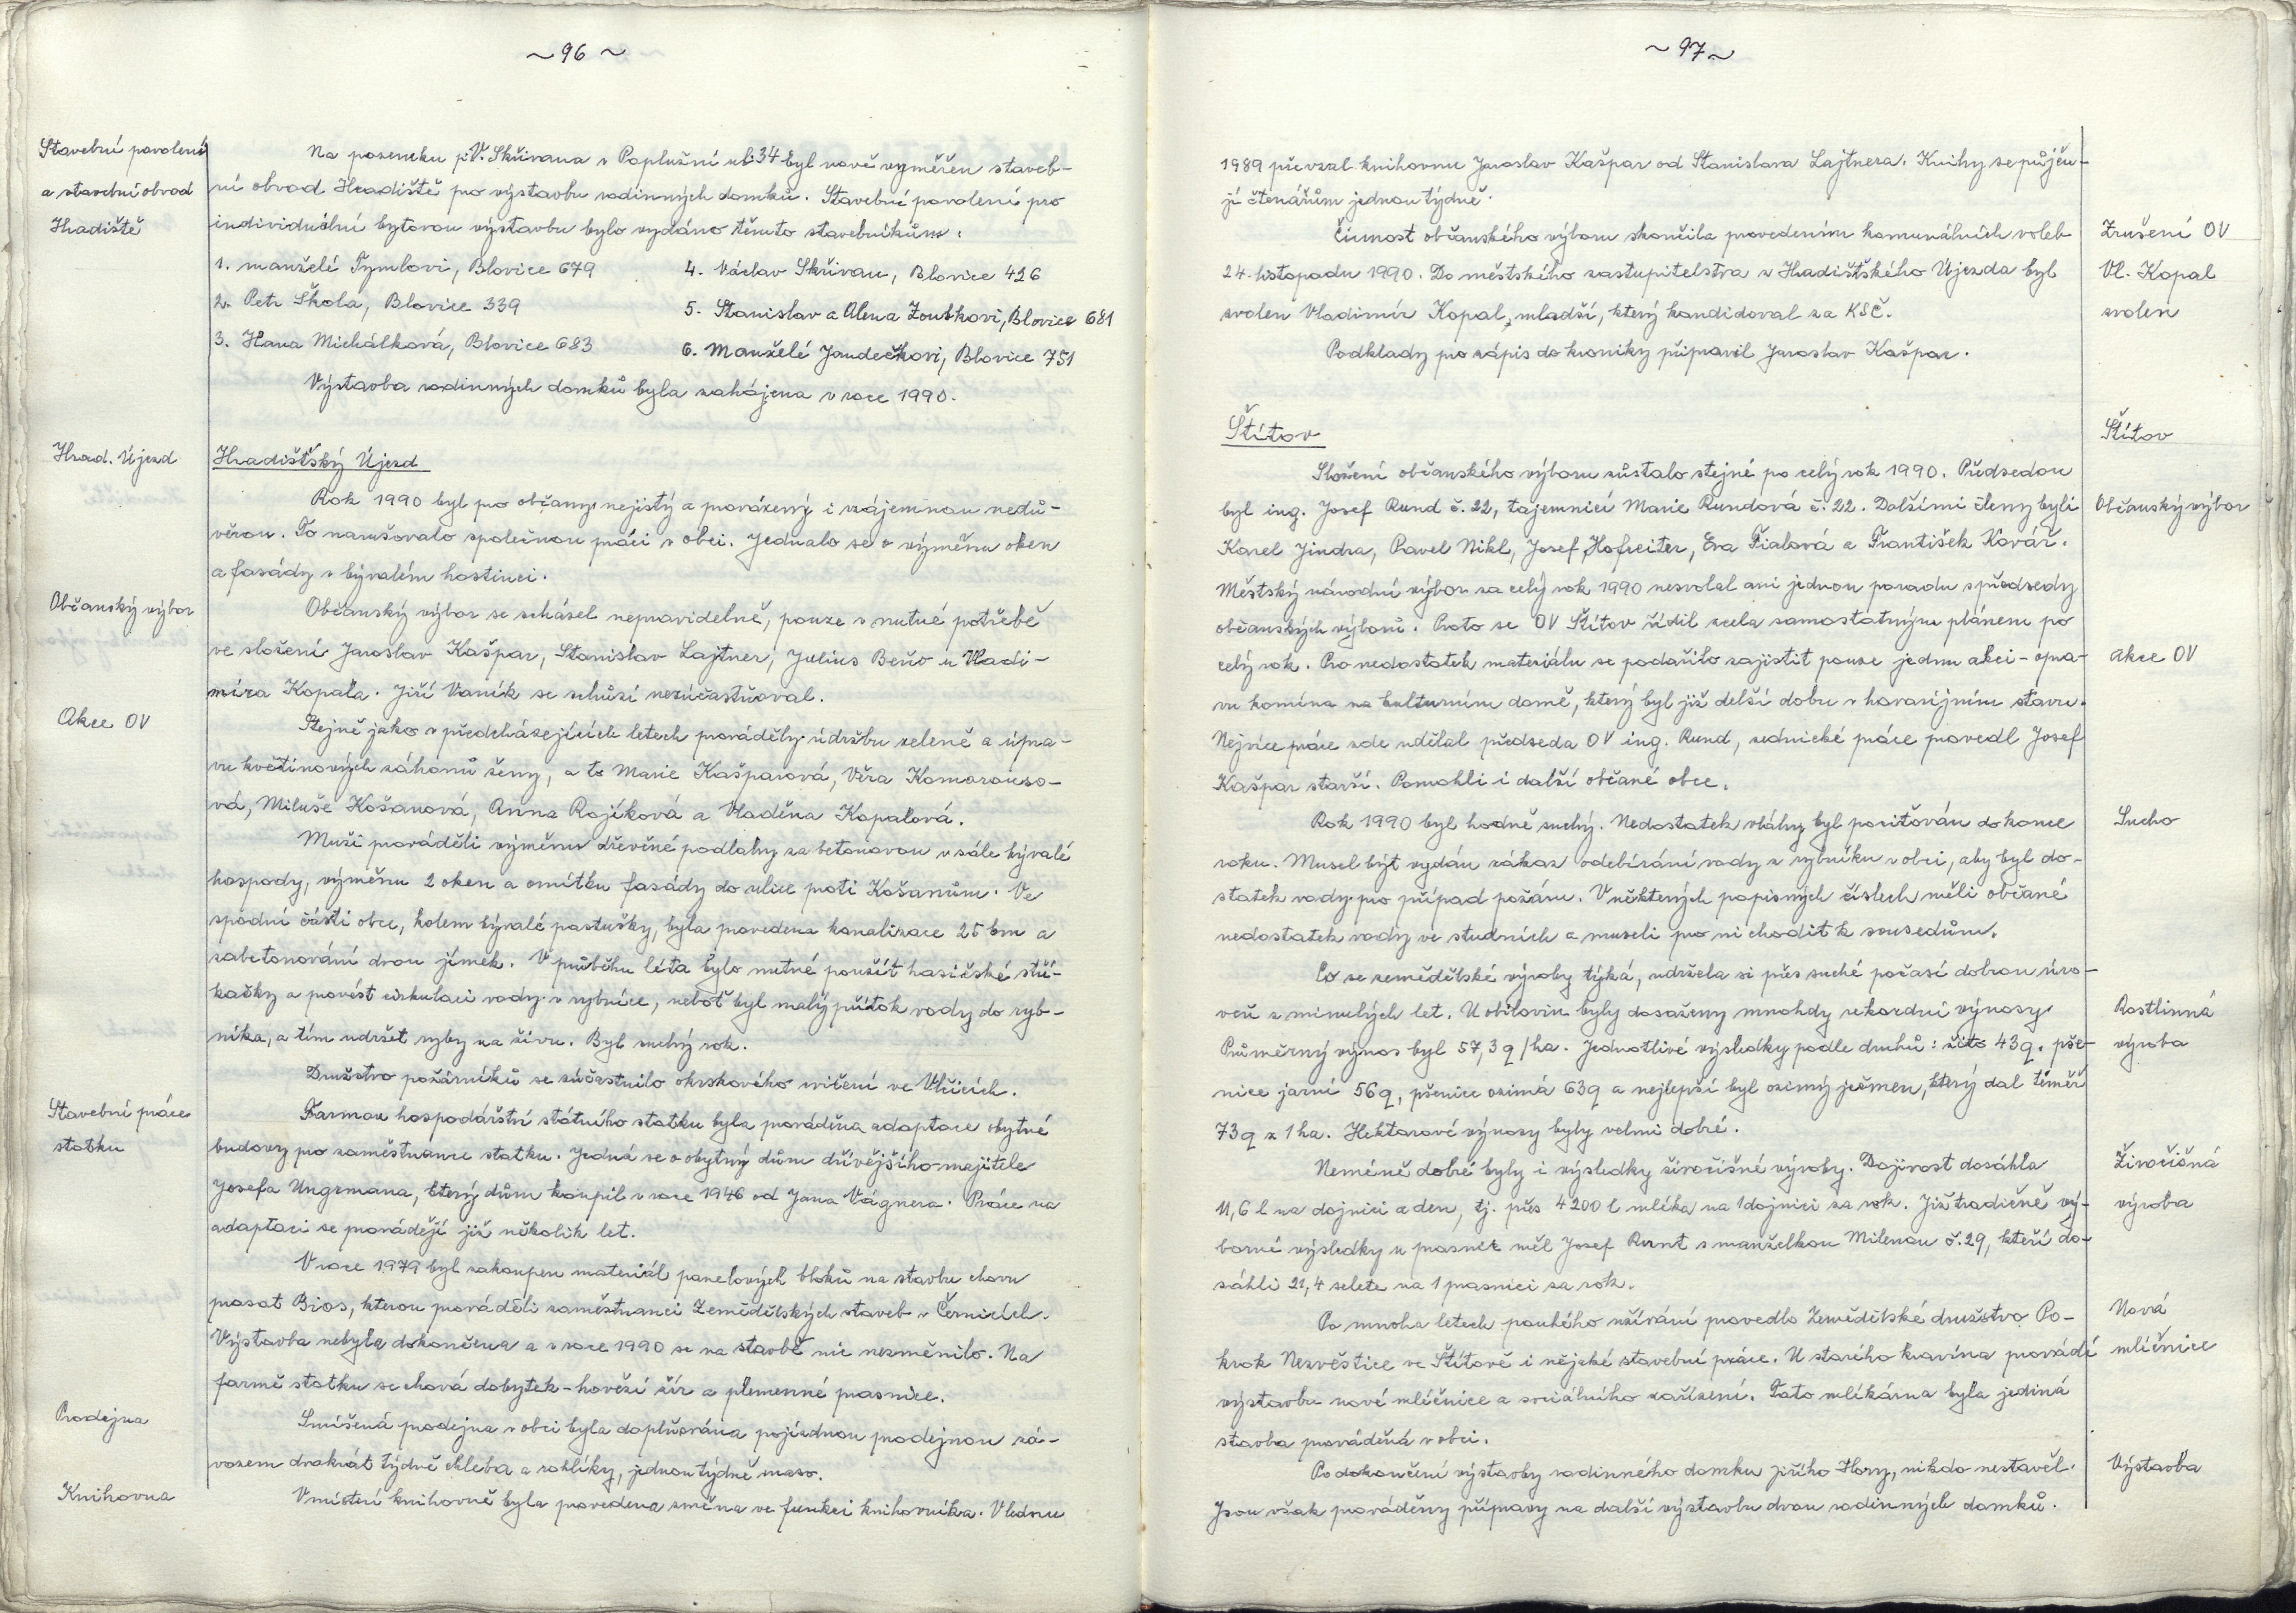 ~ 96 ~
Stavební povolení
a stavební obvod
Hradiště
Na pozemku p. V. Skřivana v Poplužní ul. 34 byl nově vyměřen staveb-
ní obvod Hradiště pro výstavbu rodinných domků. Stavební povolení pro
individuální bytovou výstavbu bylo vydáno těmto stavebníkům:
1. manželé Tymlovi, Blovice 679
4. Václav Skřivan, Blovice 426
2. Petr Škola, Blovice 339
5. Stanislav a Alena Zoubkovi, Blovice 681
3. Hana Michálková, Blovice 683
6. Manželé Jandečkovi, Blovice 751
Výstavba rodinných domků byla zahájena v roce 1990.
Hrad. Újezd
Hradišťský Újezd
Rok 1990 byl pro občany nejistý a provázený i vzájemnou nedů-
věrou. To narušovalo společnou práci v obci. Jednalo se o výměnu oken
a fasády v bývalém hostinci.
Občanský výbor
Občanský výbor se scházel nepravidelně, pouze v nutné potřebě
ve složení Jaroslav Kašpar, Stanislav Lajtner, Julius Beňo a Vladi-
míra Kopala. Jiří Vaník se schůzí nezúčastňoval.
Akce OV
Stejně jako v předcházejících letech prováděly údržbu zeleně a úpra-
vu květinových záhonů ženy, a to Marie Kašparová, Věra Komorouso-
vá, Miluše Košanová, Anna Rojíková a Vladěna Kopalová.
Muži prováděli výměnu dřevěné podlahy za betonovou v sále bývalé
hospody, výměnu 2 oken a omítku fasády do ulice proti Košanům. Ve
spodní části obce, kolem bývalé pastušky, byla provedena kanalizace 25 bm a
zabetonování dvou jímek. V průběhu léta bylo nutné použít hasičské stří-
kačky a provést cirkulaci vody v rybníce, neboť byl malý přítok vody do ryb-
níka, a tím udržet ryby na živu. Byl suchý rok.
Družstvo požárníků se zúčastnilo okrskového cvičení ve Vlčicích.
Stavební práce
statku
Farmou hospodářství státního statku byla prováděna adaptace obytné
budovy pro zaměstnance statku. Jedná se o obytný dům dřívějšího majitele
Josefa Ungrmana, který dům koupil v roce 1946 od Jana Vágnera. Práce na
adaptaci se provádějí již několik let.
V roce 1979 byl zakoupen materiál panelových bloků na stavbu chovu
prasat Bios, kterou prováděli zaměstnanci Zemědělských staveb v Černicích.
Výstavba nebyla dokončena a v roce 1990 se na stavbě nic nezměnilo. Na
farmě statku se chová dobytek - hovězí žír a plemenné prasnice.
Prodejna
Smíšená prodejna v obci byla doplňována pojízdnou prodejnou zá-
vozem dvakrát týdně chleba a rohlíky, jednou týdně maso.
Knihovna
V místní knihovně byla provedena změna ve funkci knihovníka. V lednu
~ 97 ~
1989 převzal knihovnu Jaroslav Kašpar od Stanislava Lajtnera. Knihy se půjču-
jí čtenářům jednou týdně.
Činnost občanského výboru skončila provedením komunálních voleb
Zrušení OV
24. listopadu 1990. Do městského zastupitelstva z Hradišťského Újezda byl
Vl. Kopal
zvolen Vladimír Kopal, mladší, který kandidoval za KSČ.
zvolen
Podklady pro zápis do kroniky připravil Jaroslav Kašpar.
Štítov
Štítov
Složení občanského výboru zůstalo stejné po celý rok 1990. Předsedou
byl ing. Josef Rund č. 22, tajemnicí Marie Rundová č. 22. Dalšími členy byli
Občanský výbor
Karel Jindra, Pavel Nikl, Josef Hofreiter, Eva Fialová a František Kovář.
Městský národní výbor za celý rok 1990 nesvolal ani jednou poradu s předsedy
občanských výborů. Proto se OV Štítov řídil zcela samostatným plánem po
celý rok. Pro nedostatek materiálu se podařilo zajistit pouze jednu akci - opra-
Akce OV
vu komína na kulturním domě, který byl již delší dobu v havarijním stavu.
Nejvíce práce zde udělal předseda OV ing. Rund, zednické práce provedl Josef
Kašpar starší. Pomohli i další občané obce.
Rok 1990 byl hodně suchý. Nedostatek vláhy byl pociťován do konce
Sucho
roku. Musel být vydán zákaz odebírání vody z rybníku v obci, aby byl do-
statek vody pro případ požáru. V některých popisných číslech měli občané
nedostatek vody ve studních a museli pro ni chodit k sousedům.
Co se zemědělské výroby týká, udržela si přes suché počasí dobrou úro-
veň z minulých let. U obilovin byly dosaženy mnohdy rekordní výnosy.
Rostlinná
Průměrný výnos byl 57,3 q/ha. Jednotlivé výsledky podle druhů: žito 43 q, pše-
výroba
nice jarní 56 q, pšenice ozimá 63 q a nejlepší byl ozimý ječmen, který dal téměř
73 q z 1 ha. Hektarové výnosy byly velmi dobré.
Neméně dobré byly i výsledky živočišné výroby. Dojivost dosáhla
Živočišná
11,6 l na dojnici a den, tj. přes 4200 l mléka na 1 dojnici za rok. Již tradičně vý-
výroba
borné výsledky u prasnic měl Josef Runt s manželkou Milenou č. 29, kteří do-
sáhli 21,4 selete na 1 prasnici za rok.
Po mnoha letech pouhého užívání provedlo Zemědělské družstvo Po-
Nová
krok Nezvěstice ve Štítově i nějaké stavební práce. U starého kravína provádí
mléčnice
výstavbu nové mléčnice a sociálního zařízení. Tato mlékárna byla jediná
stavba prováděná v obci.
Po dokončení výstavby rodinného domku Jiřího Hory, nikdo nestavěl.
Výstavba
Jsou však prováděny přípravy na další výstavbu dvou rodinných domků.